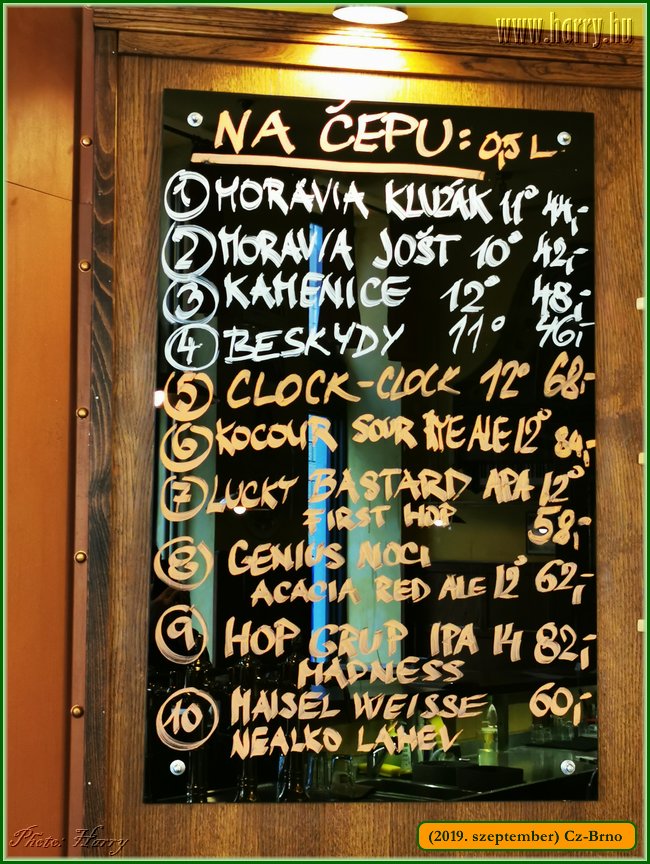 www.harry.hu
NA ČEPU: 0,5 L
1 MORAVIA KLUZÁK 11° 44,-
2 MORAVIA JOŠT 10° 42,-
3 KAMENICE 12° 48,-
4 BESKYDY 11° 46,-
5 CLOCK-CLOCK 12° 68,-
6 KOCOUR SOUR RYE ALE 12° 84,-
7 LUCKY BASTARD APA 12°
FIRST HOP 58,-
8 GENIUS NOCI
ACACIA RED ALE 12° 62,-
9 HOP GRUP IPA 14 82,-
MADNESS
10 MAISEL WEISSE 60,-
NEALKO LAHEV
Photo: Harry
(2019. szeptember) Cz-Brno